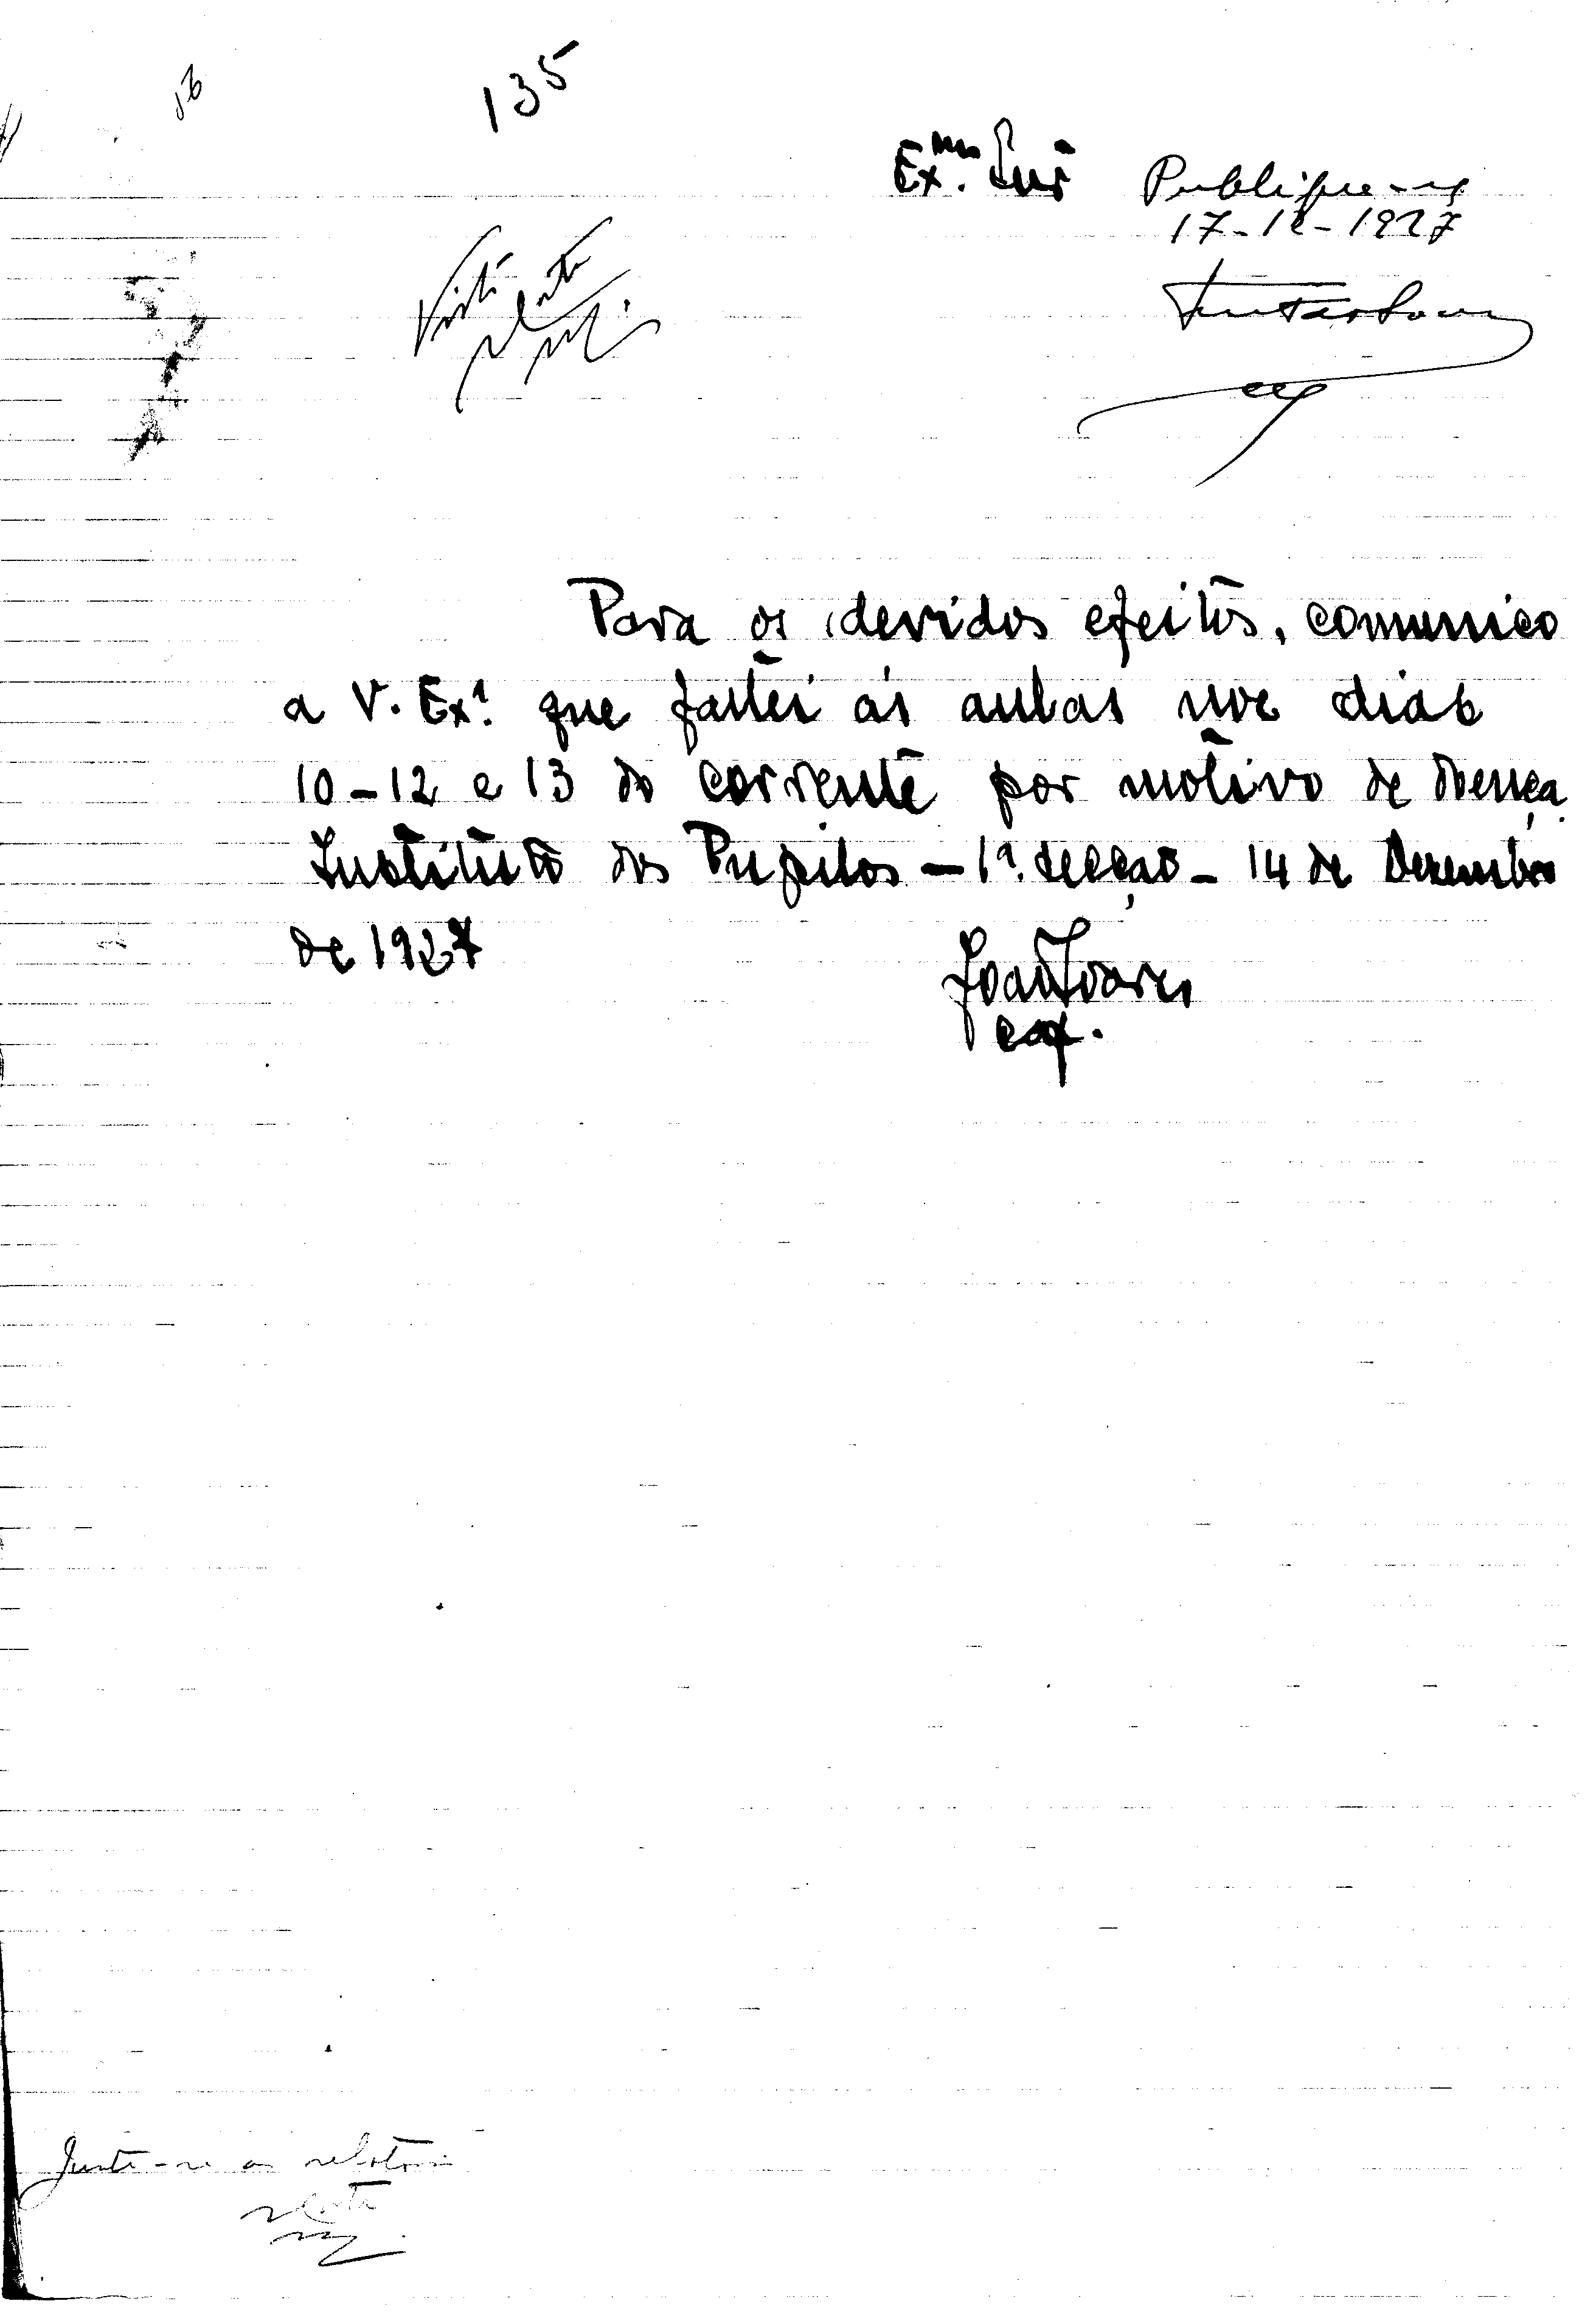 135
Ex.mo Snr
Publique-se
17-12-1927
Visto
Para os devidos efeitos, comunico
a V. Ex.ª que faltei ás aulas nos dias
10-12 e 13 do corrente por motivo de doença.
Instituto dos Pupilos - 1ª. secção - 14 de Dezembro
de 1927
João Soares
cap.
Junte-se ao relatorio